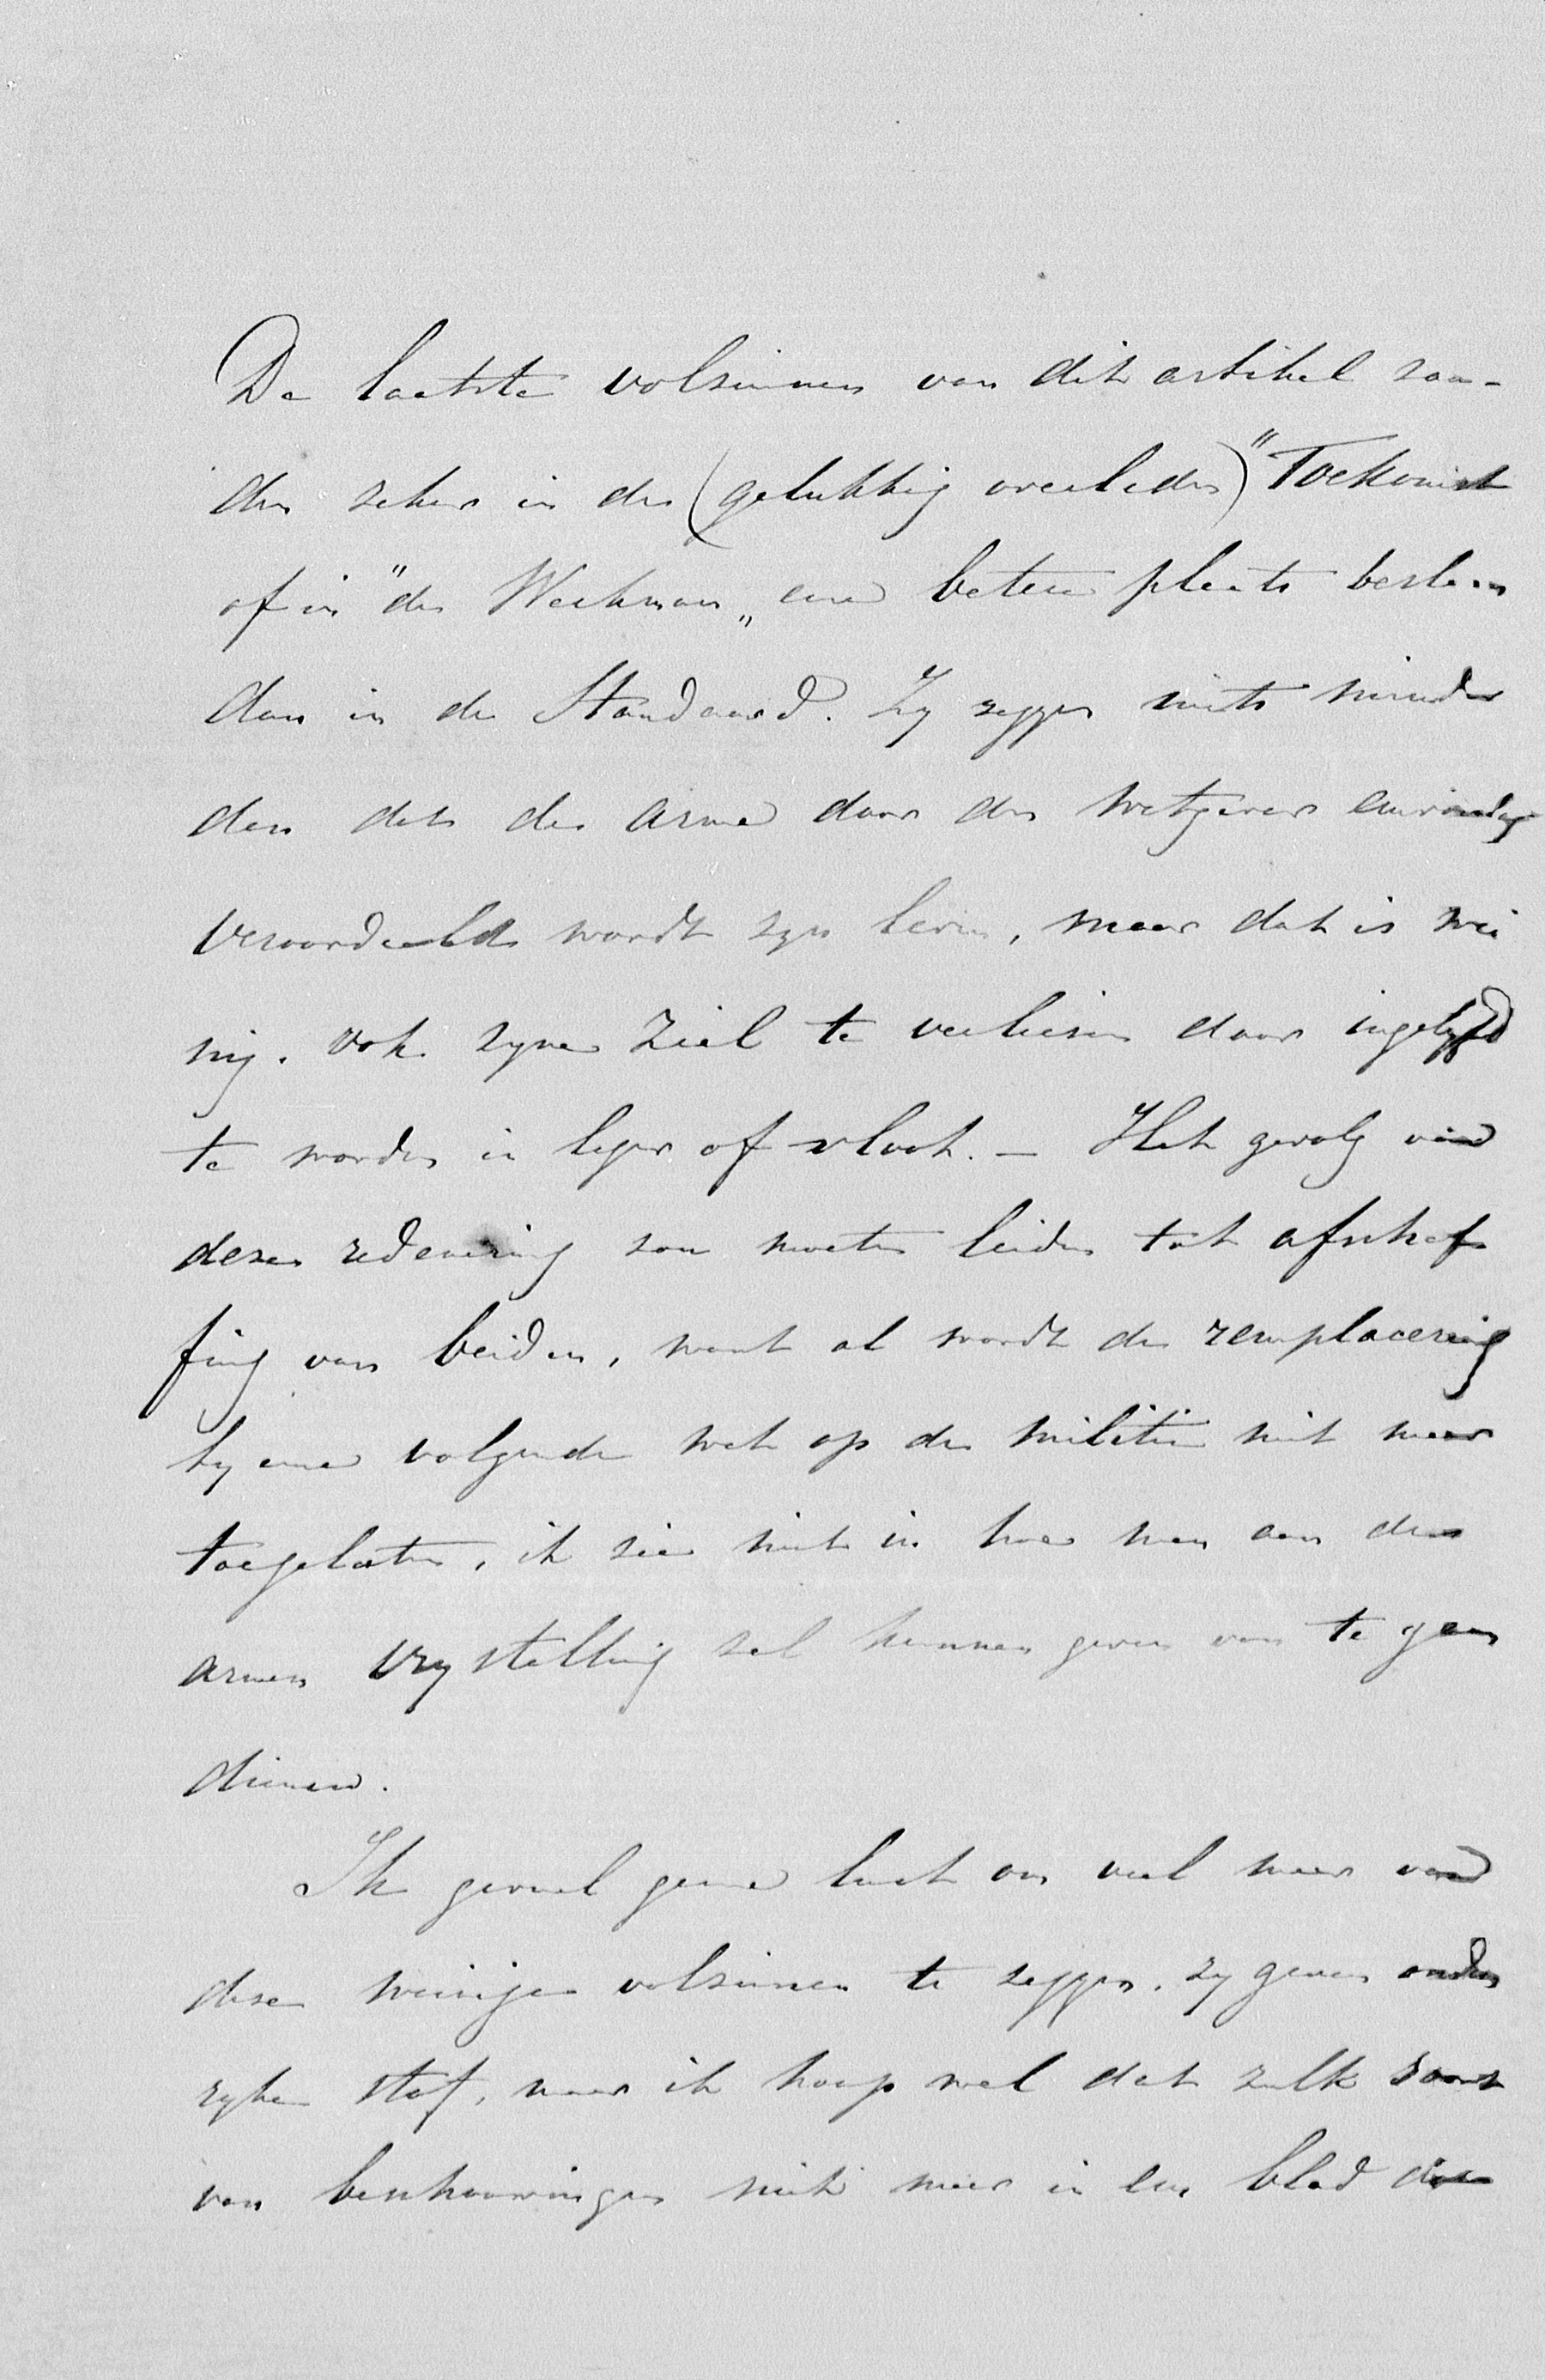 De laatste volzinnen van dit artikel zou-
den zeker in de (gelukkig overleden) "Toekomst
of in "de Werkman„ eene betere plaats beslaan
dan in de Standaard. Zy zeggen niets minder
dan dat de arme door den wetgever eenvoudig
veroordeeld wordt zyn leven, maar dat is wei
nig. ook zyne Ziel te verliezen door ingelyfd
te worden in leger of vloot. – Het gevolg van
deze redenering zou moeten leiden tot afschaf
fing van beiden, want al wordt de remplacering
by eene volgende wet op de militie niet meer
toegelaten, ik zie niet in hoe men aan den
armen vrystelling zal kunnen geven van te gaan
dienen.
Ik gevoel geene lust om veel meer van
deze weinige volzinnen te zeggen. zy geven
ryke stof, maar ik hoop wel dat zulk soort
van beschouwingen niet meer in een blad dat